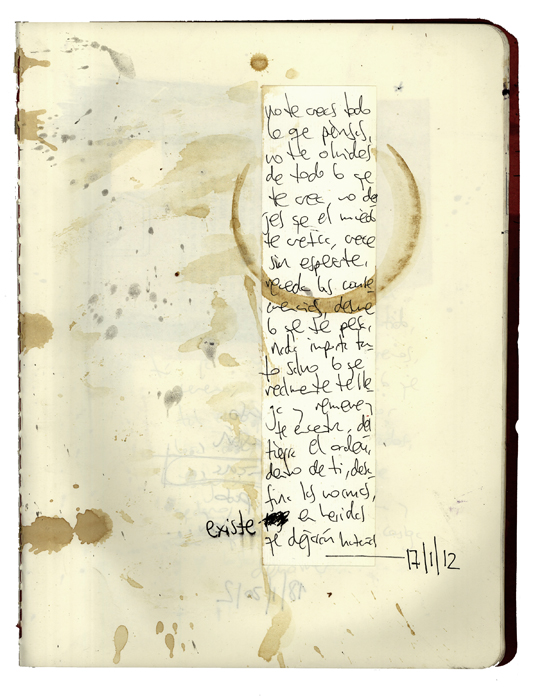 no te creas todo
lo que pienses,
no te olvides
de todo lo que
te cree, no de
jes que el miedo
te crezca, crece
sin esperarte,
las conse
cuencias,
lo que te pese,
nada importa tan
to salvo lo que
realmente te lle
ga y remueve,
te
el orden
dentro de ti, desa
fina las normas,
existe en heridas
que dejarán huellas
17/1/12